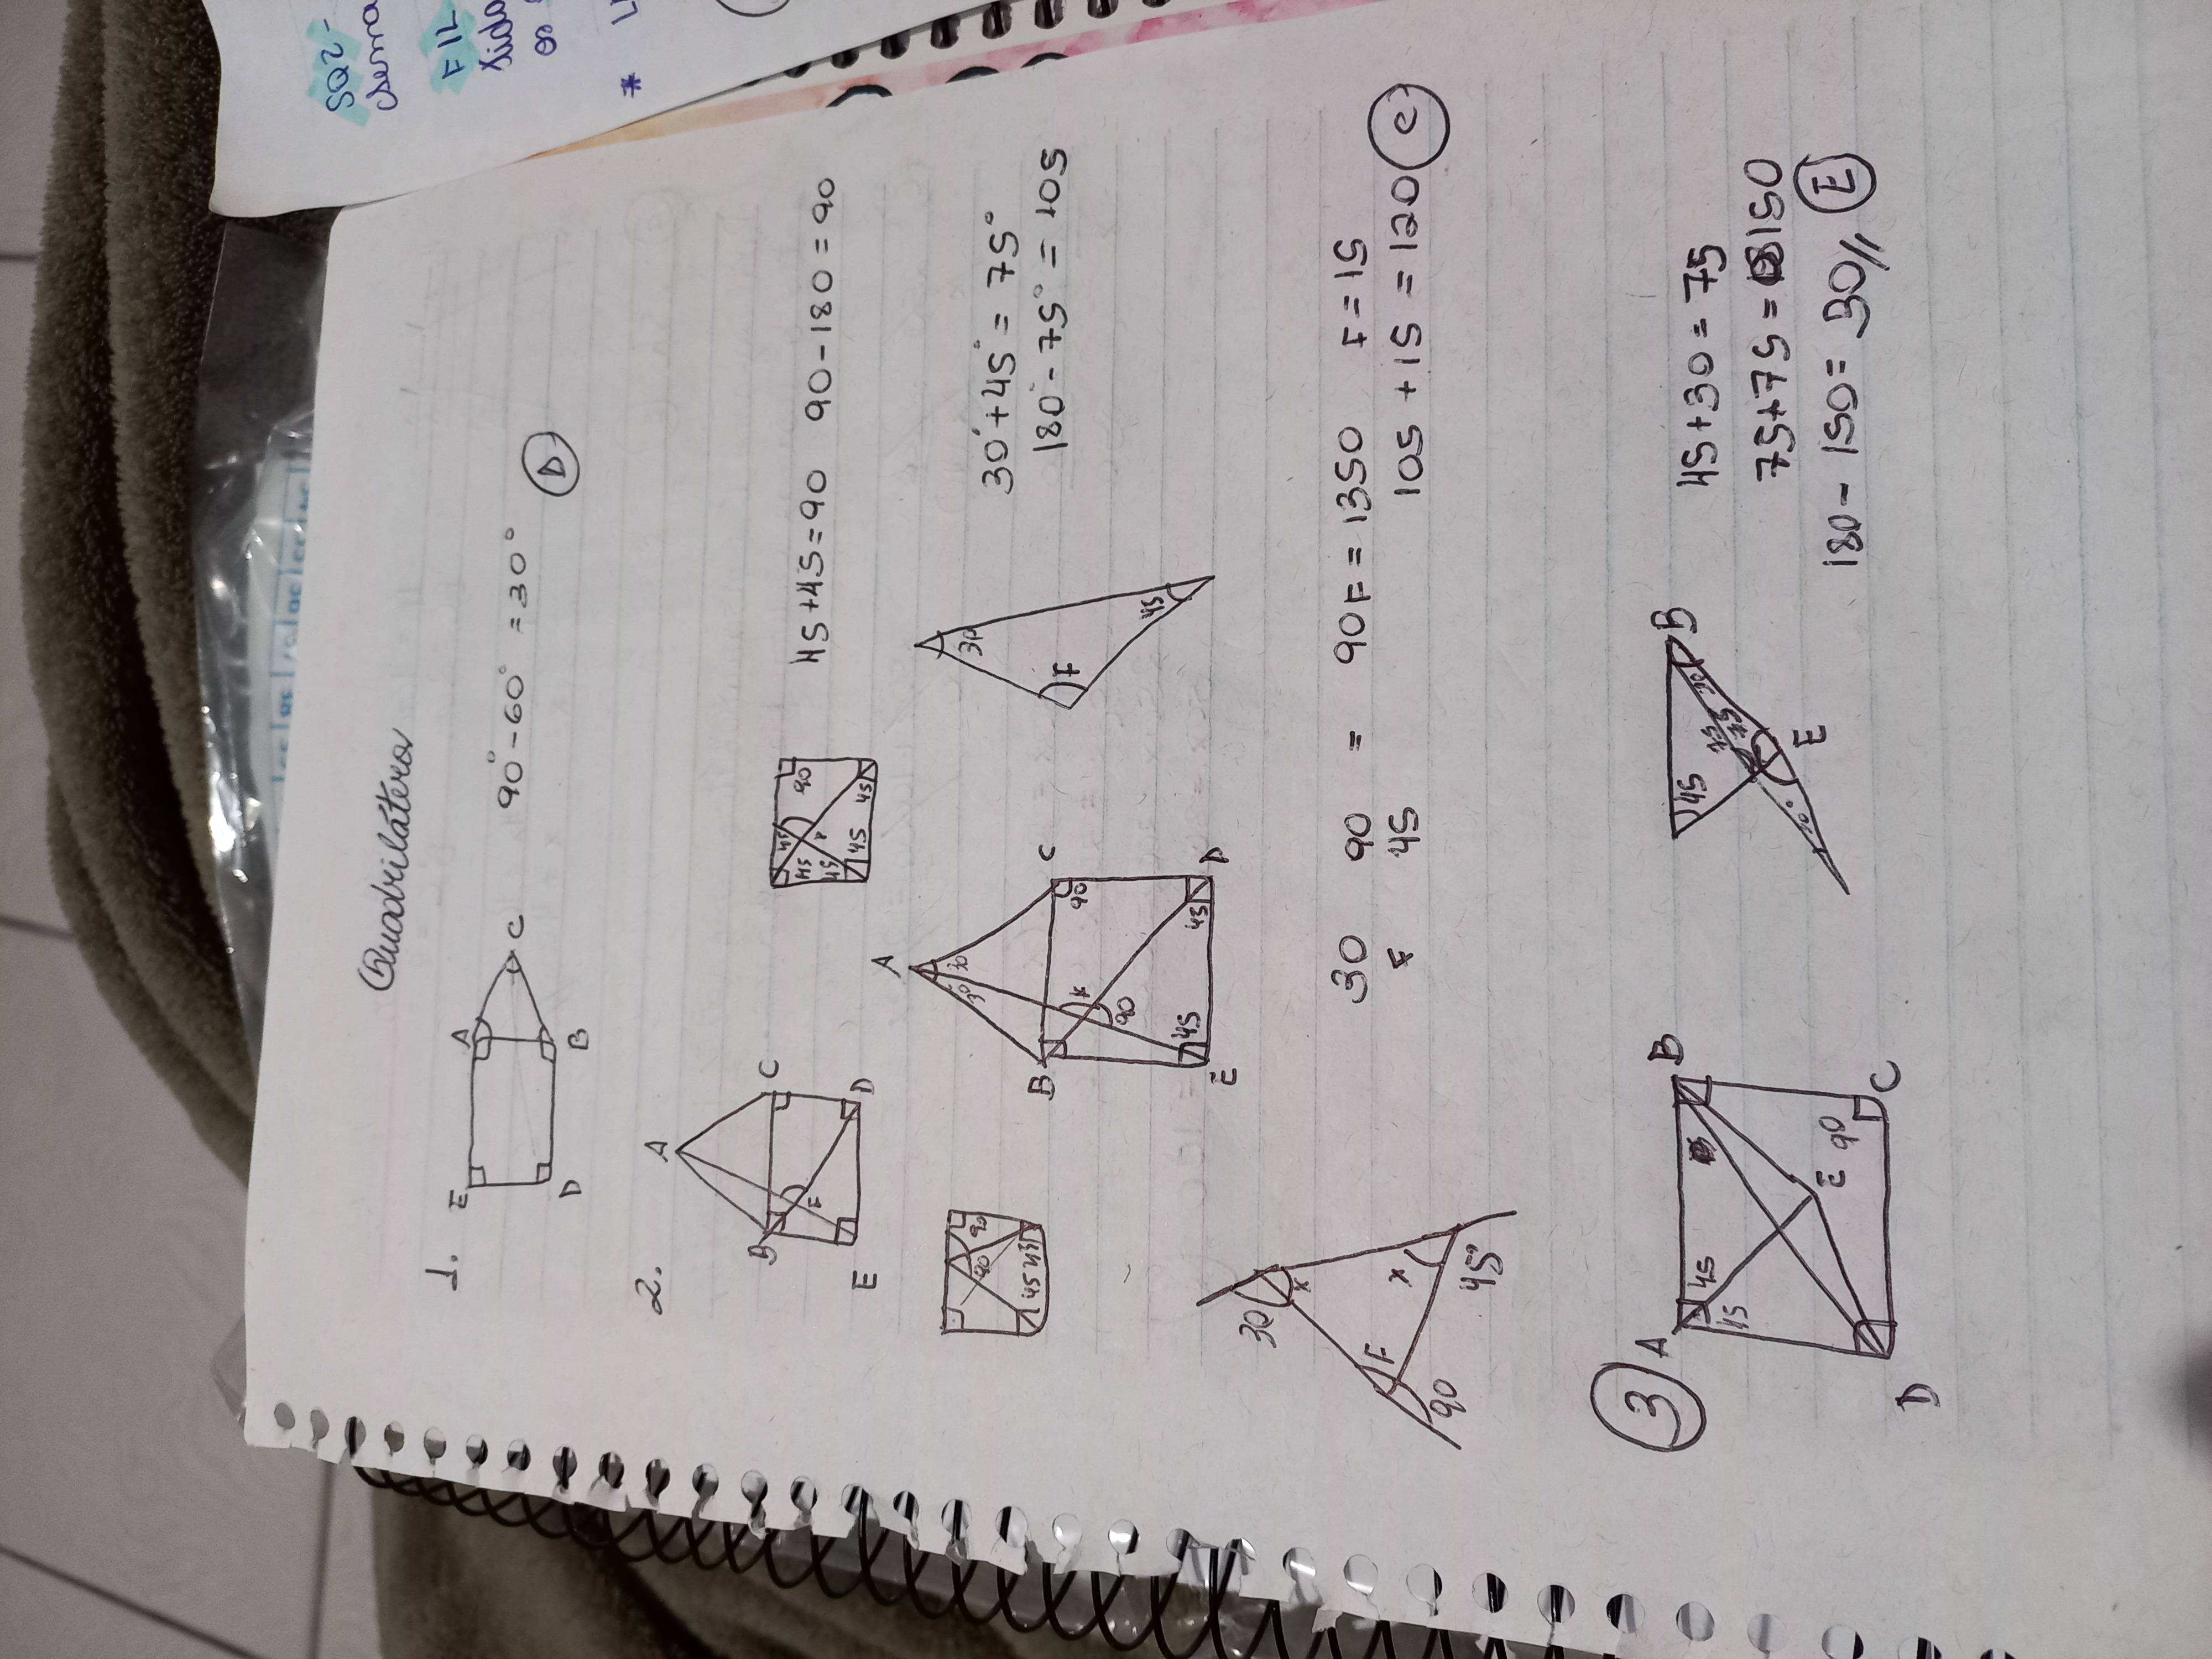 Quadrilátero
1.
E A
C
D B
90° - 60° = 30°
D
2.
A
B C
F
E D
45 45 90
45 F
45 45
45 + 45 = 90 90 - 180 = 90
90 90
45 45
A
30 30
B C
x 90
90
45 45
E D
30
F
45
30° + 45° = 75°
180° - 75° = 105
30
x
F x
90
45°
30 90 = 90F = 1350 F = 15
F 45 105 + 15 = 120 C
3
A B
45
45
E 90
D C
45 B
75 30
75
E
45 + 30 = 75
75 + 75 = 150
180 - 150 = 30// E
SQ2 -
FIL
os
*